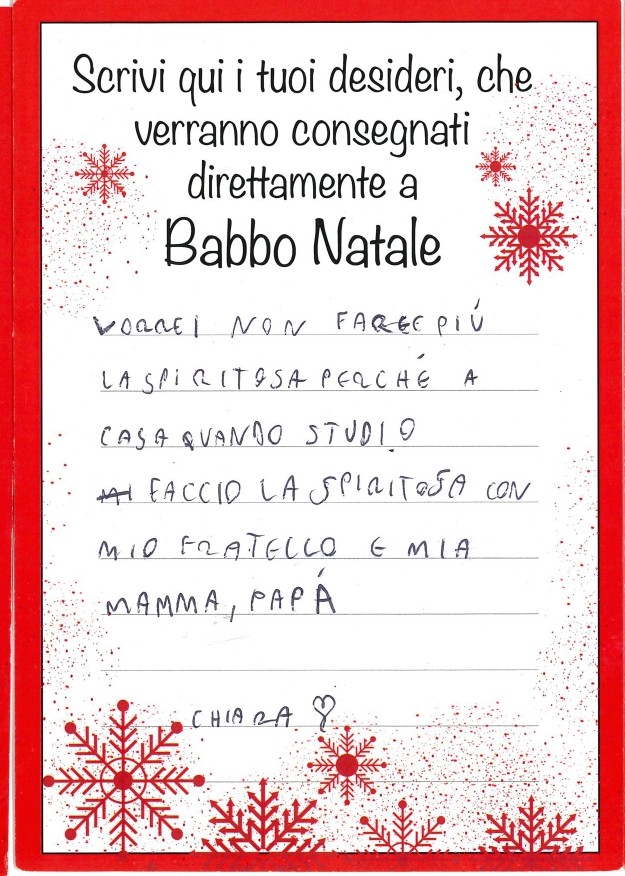 Scrivi qui i tuoi desideri, che
verranno consegnati
direttamente a
Babbo Natale
VORREI NON FARE PIÚ
LA SPIRITOSA PERCHÉ A
CASA QUANDO STUDIO
FACCIO LA SPIRITOSA CON
MIO FRATELLO E MIA
MAMMA, PAPÁ
CHIARA